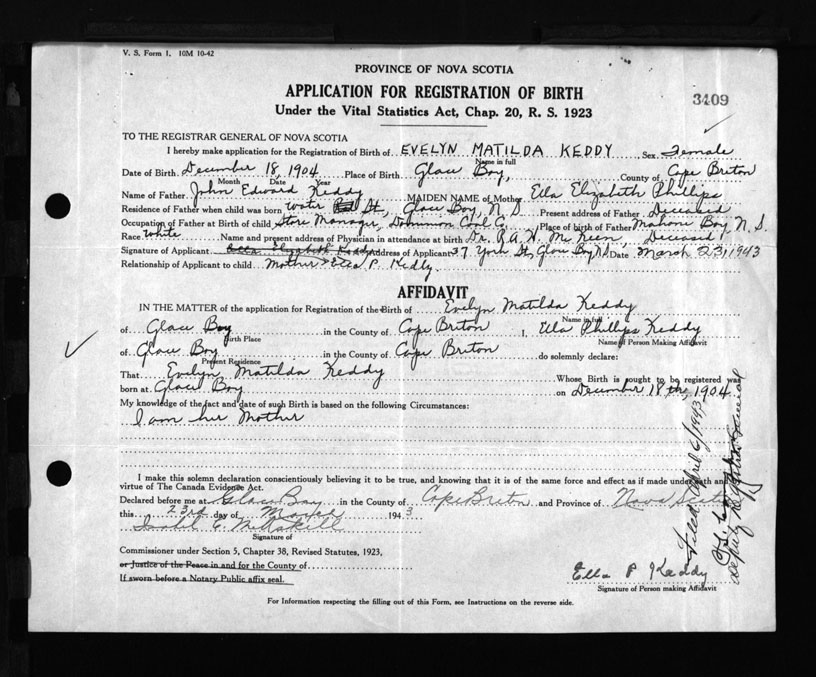 V. S. Form 1. 10M 10-42
PROVINCE OF NOVA SCOTIA
APPLICATION FOR REGISTRATION OF BIRTH
3409
Under the Vital Statistics Act, Chap. 20, R. S. 1923
TO THE REGISTRAR GENERAL OF NOVA SCOTIA
I hereby make application for the Registration of Birth of EVELYN MATILDA KEDDY Sex Female
Name in full
Date of Birth December 18, 1904 Place of Birth Glace Bay, County of Cape Breton
Month Date Year
Name of Father John Edward Keddy MAIDEN NAME of Mother Ella Elizabeth Phillips
Residence of Father when child was born Water St, Glace Bay, N S Present address of Father Deceased
Occupation of Father at Birth of child Store Manager, Dominion Coal Co, Place of birth of Father Mahone Bay N. S.
Race White Name and present address of Physician in attendance at birth Dr. A. Mc Keen, Deceased,
Signature of Applicant Ella Elizabeth Keddy Address of Applicant 37 York St, Glace Bay N.S Date March 23, 1943
Relationship of Applicant to child Mother Ella P. Keddy
AFFIDAVIT
IN THE MATTER of the application for Registration of the Birth of Evelyn Matilda Keddy
Name in full
of Glace Bay in the County of Cape Breton I, Ella Phillips Keddy
Birth Place Name of Person Making Affidavit
of Glace Bay in the County of Cape Breton do solemnly declare:
Present Residence
That Evelyn Matilda Keddy Whose Birth is sought to be registered was
born at Glace Bay on December 18 th, 1904
My knowledge of the fact and date of such Birth is based on the following Circumstances:
I am her Mother
I make this solemn declaration conscientiously believing it to be true, and knowing that it is of the same force and effect as if made under oath and by
virtue of The Canada Evidence Act.
Declared before me at Glace Bay in the County of Cape Breton and Province of Nova Scotia
this 23rd day of March 1943
Isabel C. McKaskill
Signature of
Commissioner under Section 5, Chapter 38, Revised Statutes, 1923,
or Justice of the Peace in and for the County of
If sworn before a Notary Public affix seal.
Ella P Keddy
Signature of Person making Affidavit
For Information respecting the filling out of this Form, see Instructions on the reverse side.
Filed April 6/1943
Deputy Registrar General